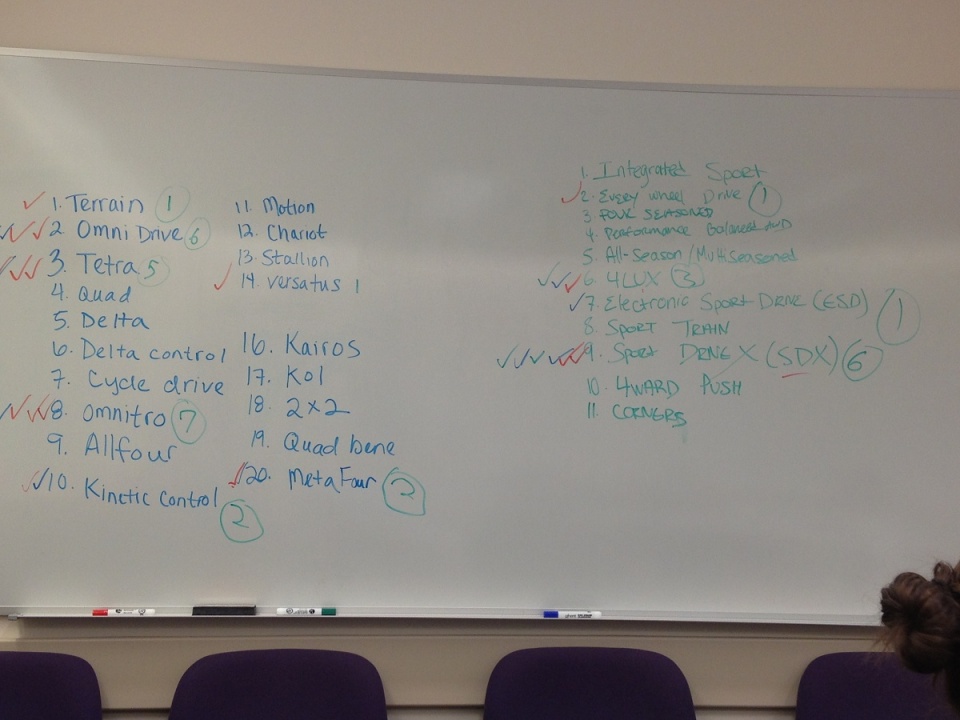 1. Terrain 1
2. Omni Drive 6
3. Tetra 5
4. Quad
5. Delta
6. Delta control
7. Cycle drive
8. Omnitro 7
9. Allfour
10. Kinetic Control 2
11. Motion
12. Chariot
13. Stallion
14. versatus 1
16. Kairos
17. Kol
18. 2x2
19. Quad bene
20. MetaFour 2
1. Integrated Sport
2. Every wheel Drive 1
3 FOUR SEASONED
4. Performance Balanced AWD
5. All-Season/Multiseasoned
6. 4LUX 3
7. Electronic Sport Drive (ESD) 1
8. SPORT TRAIN
9. Sport DRIVE X (SDX) 6
10. 4WARD PUSH
11. CORNERS